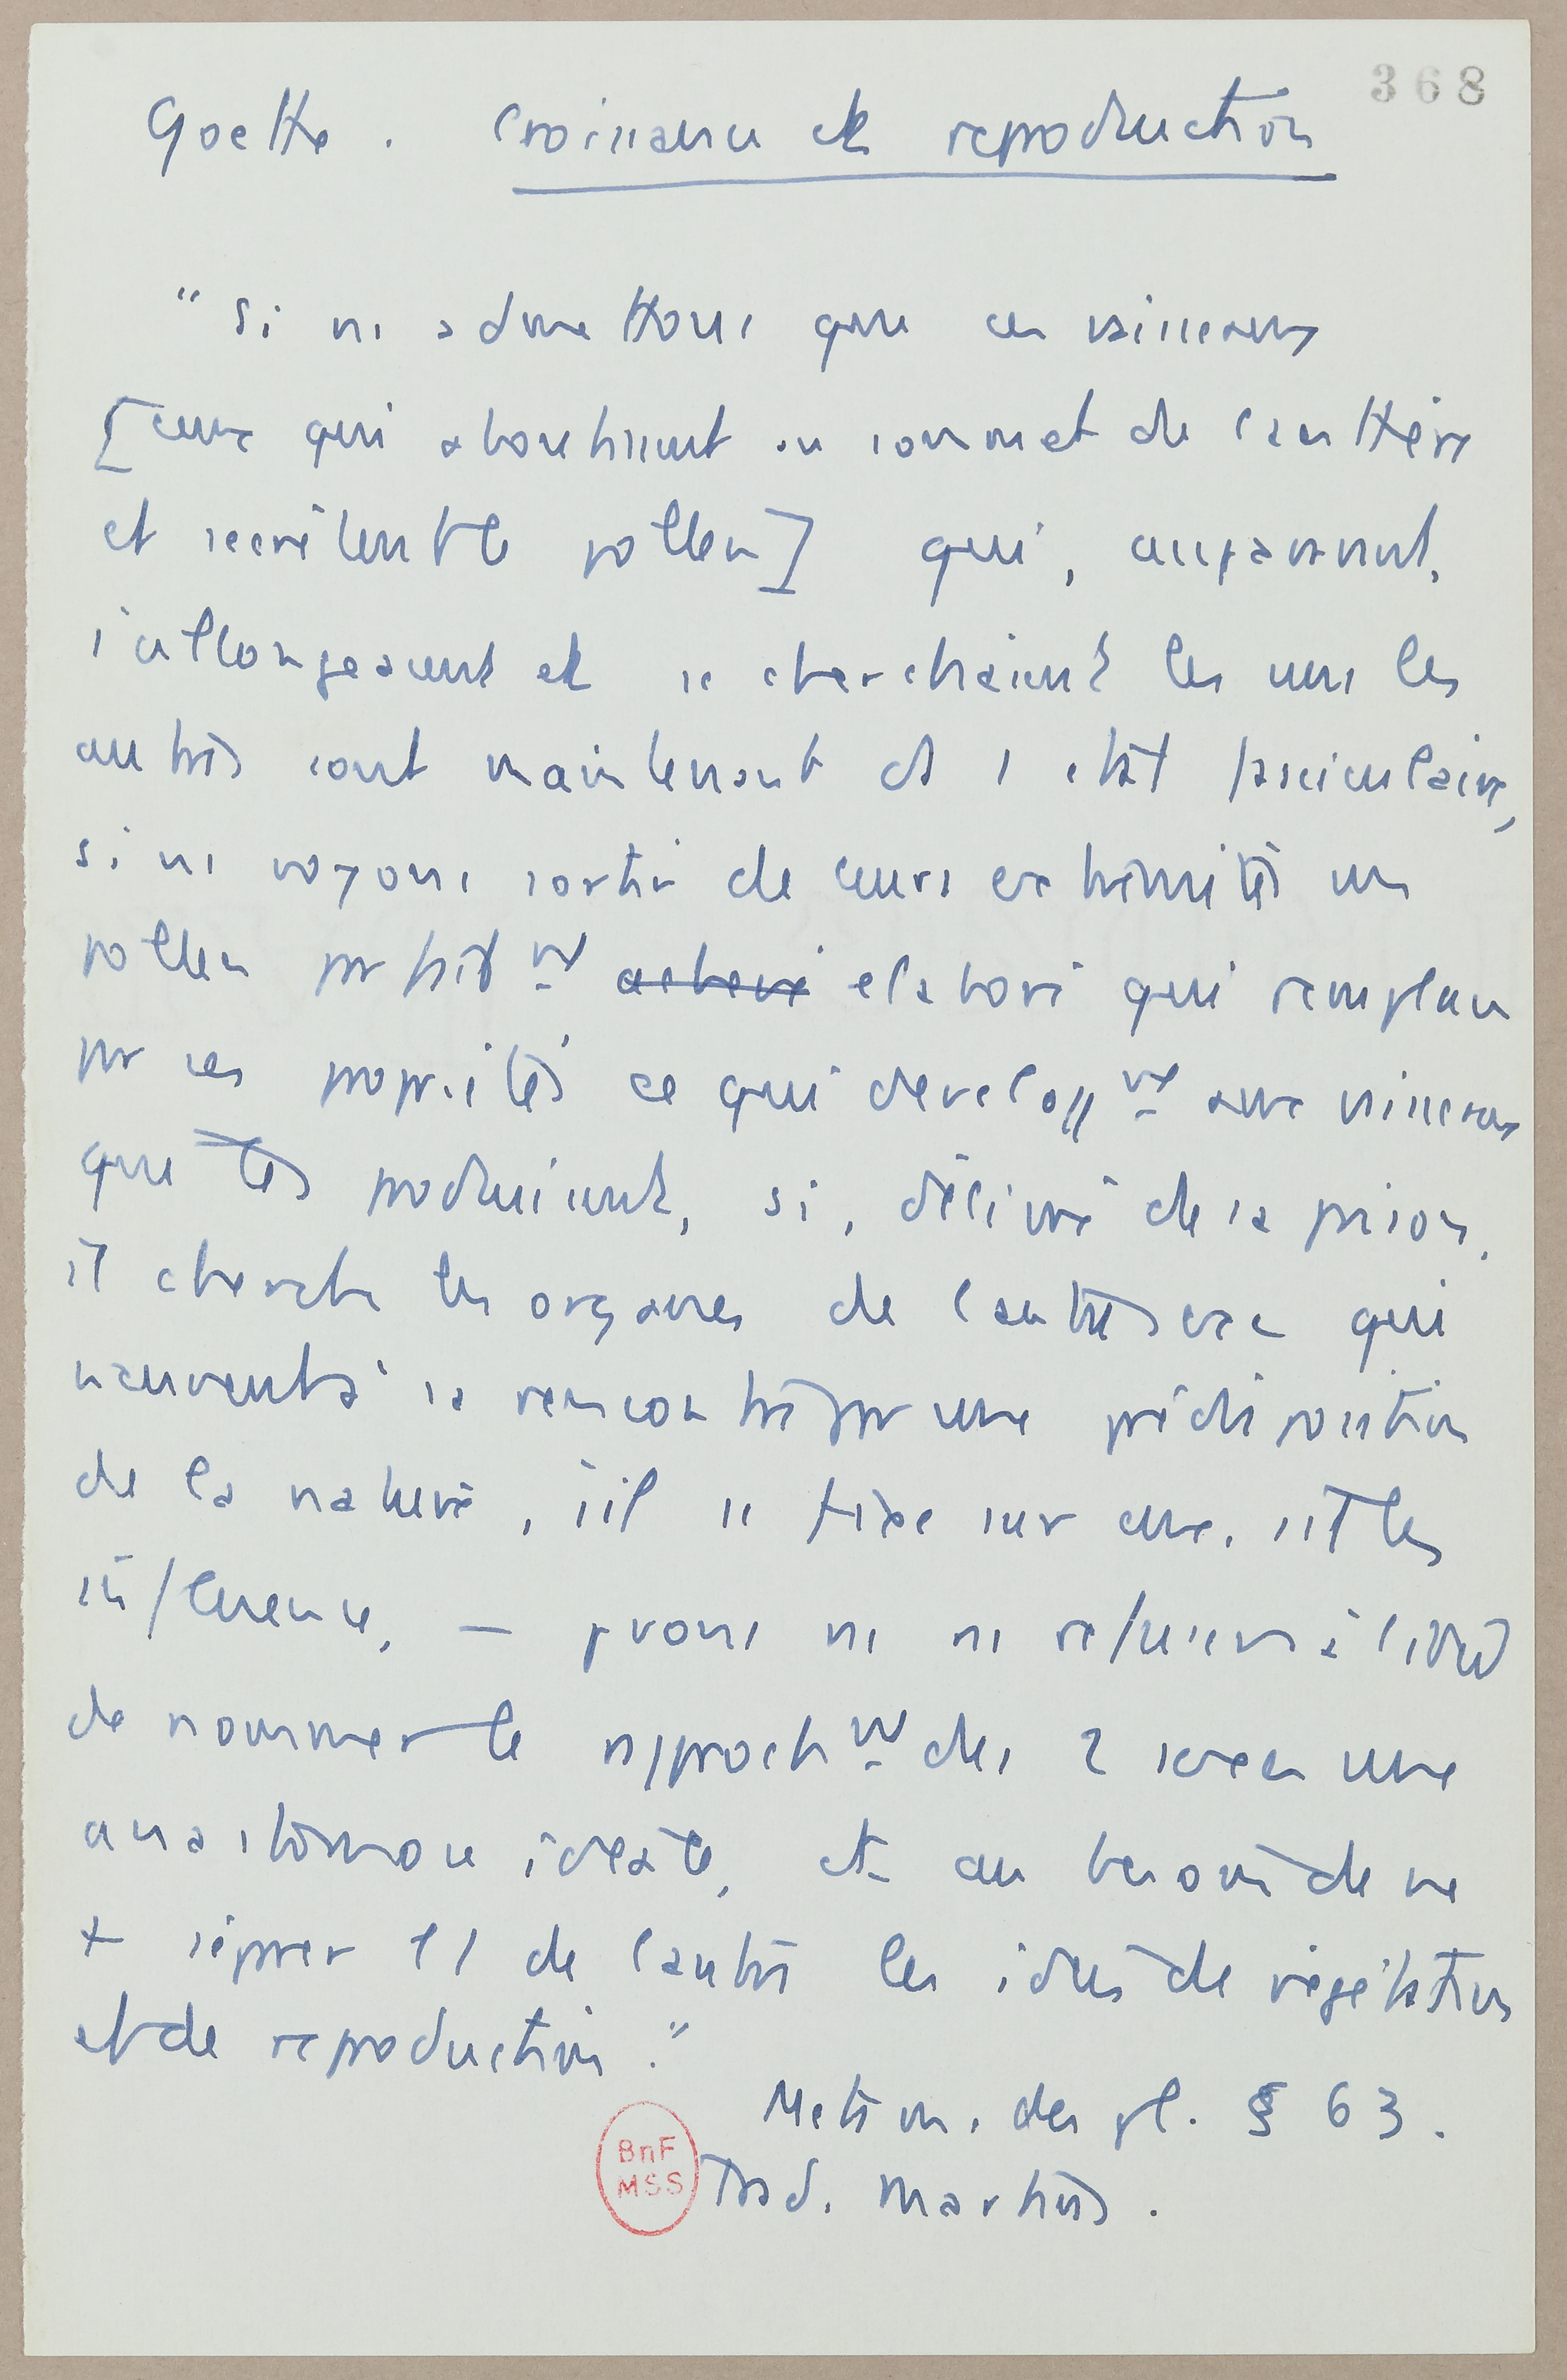 368
Goethe. Croissance et reproduction
"Si ns admettons que ces vaisseaux
[ceux qui aboutissent au sommet de l'anthère
et secrètent le pollen] qui, auparavant,
s'allongeaient et se cherchaient les uns les
autres sont maintenant à l'état fasciculaire,
si ns voyons sortir de leurs extrémités un
pollen parfait^nt achevé élaboré qui remplace
par ses propriétés ce qui developp^nt aux vaisseaux
que les produisent, si, délivré de sa prison,
il cherche les organes de l'autre sexe qui
naissent à sa rencontre par une prédisposition
de la nature, s'il se fixe sur eux, s'il les
influence, — nous ns ns refuserons à l'idée
de nommer le rapproch^nt des 2 sexes une
anastomose idéale, et au besoin de ne
+ séparer l'1 de l'autre les idées de végétation
et de reproduction."
Metam. des pl. § 63.
BnF
MSS
Trad. Martins.